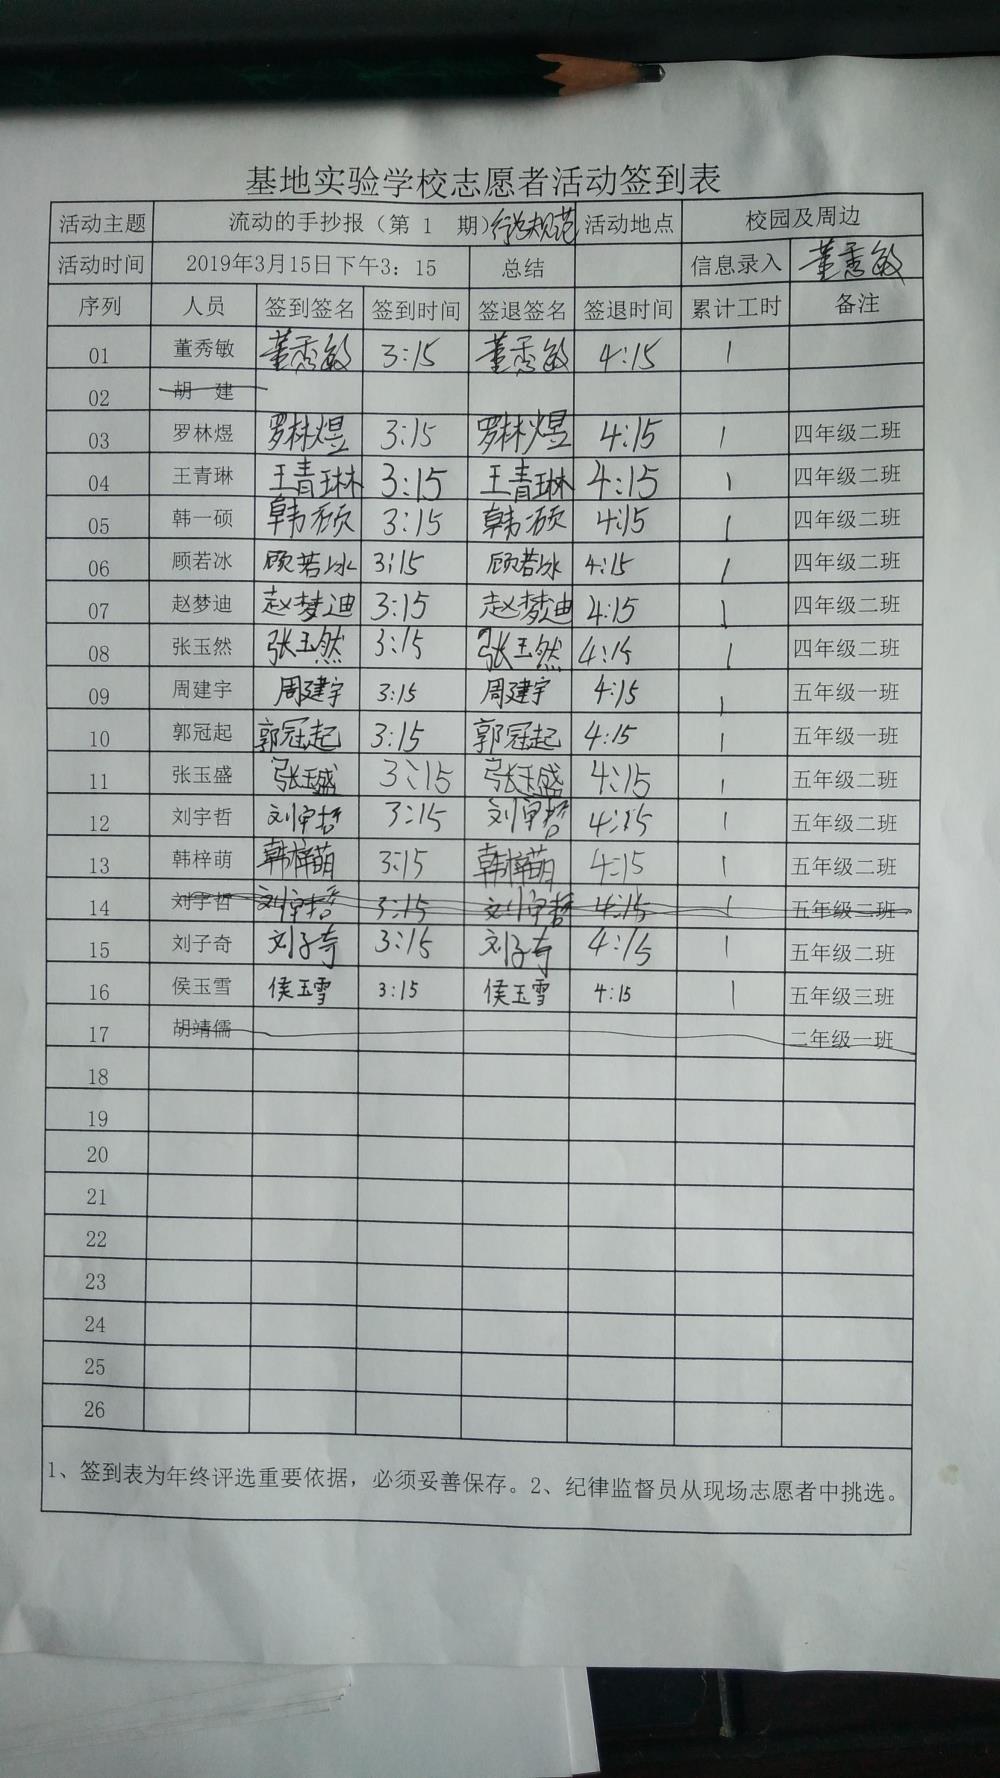 基地实验学校志愿者活动签到表
活动主题 流动的手抄报（第 1 期）行为规范 活动地点 校园及周边
活动时间 2019年3月15日下午3：15 总结 信息录入 董秀敏
序列 人员 签到签名 签到时间 签退签名 签退时间 累计工时 备注
01 董秀敏 董秀敏 3:15 董秀敏 4:15 1
02 胡 建
03 罗林煜 罗林煜 3:15 罗林煜 4:15 1 四年级二班
04 王青琳 王青琳 3:15 王青琳 4:15 1 四年级二班
05 韩一硕 韩硕 3:15 韩硕 4:15 1 四年级二班
06 顾若冰 顾若冰 3:15 顾若冰 4:15 1 四年级二班
07 赵梦迪 赵梦迪 3:15 赵梦迪 4:15 1 四年级二班
08 张玉然 张玉然 3:15 张玉然 4:15 1 四年级二班
09 周建宇 周建宇 3:15 周建宇 4:15 1 五年级一班
10 郭冠起 郭冠起 3:15 郭冠起 4:15 1 五年级一班
11 张玉盛 张玉盛 3:15 张玉盛 4:15 1 五年级二班
12 刘宇哲 刘宇哲 3:15 刘宇哲 4:15 1 五年级二班
13 韩梓萌 韩梓萌 3:15 韩梓萌 4:15 1 五年级二班
14 刘宇哲 刘宇哲 3:15 刘宇哲 4:15 1 五年级二班
15 刘子奇 刘子奇 3:15 刘子奇 4:15 1 五年级二班
16 侯玉雪 侯玉雪 3:15 侯玉雪 4:15 1 五年级三班
17 胡靖儒 二年级一班
18
19
20
21
22
23
24
25
26
1、签到表为年终评选重要依据，必须妥善保存。2、纪律监督员从现场志愿者中挑选。